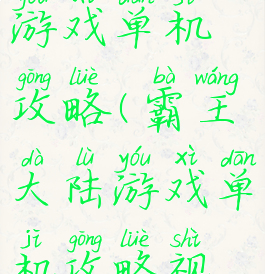 yóu xì dān jī
游戏单机
gōng lüè bà wáng
攻略(霸王
dà lù yóu xì dān
大陆游戏单
jī gōng lüè shì
机攻略视